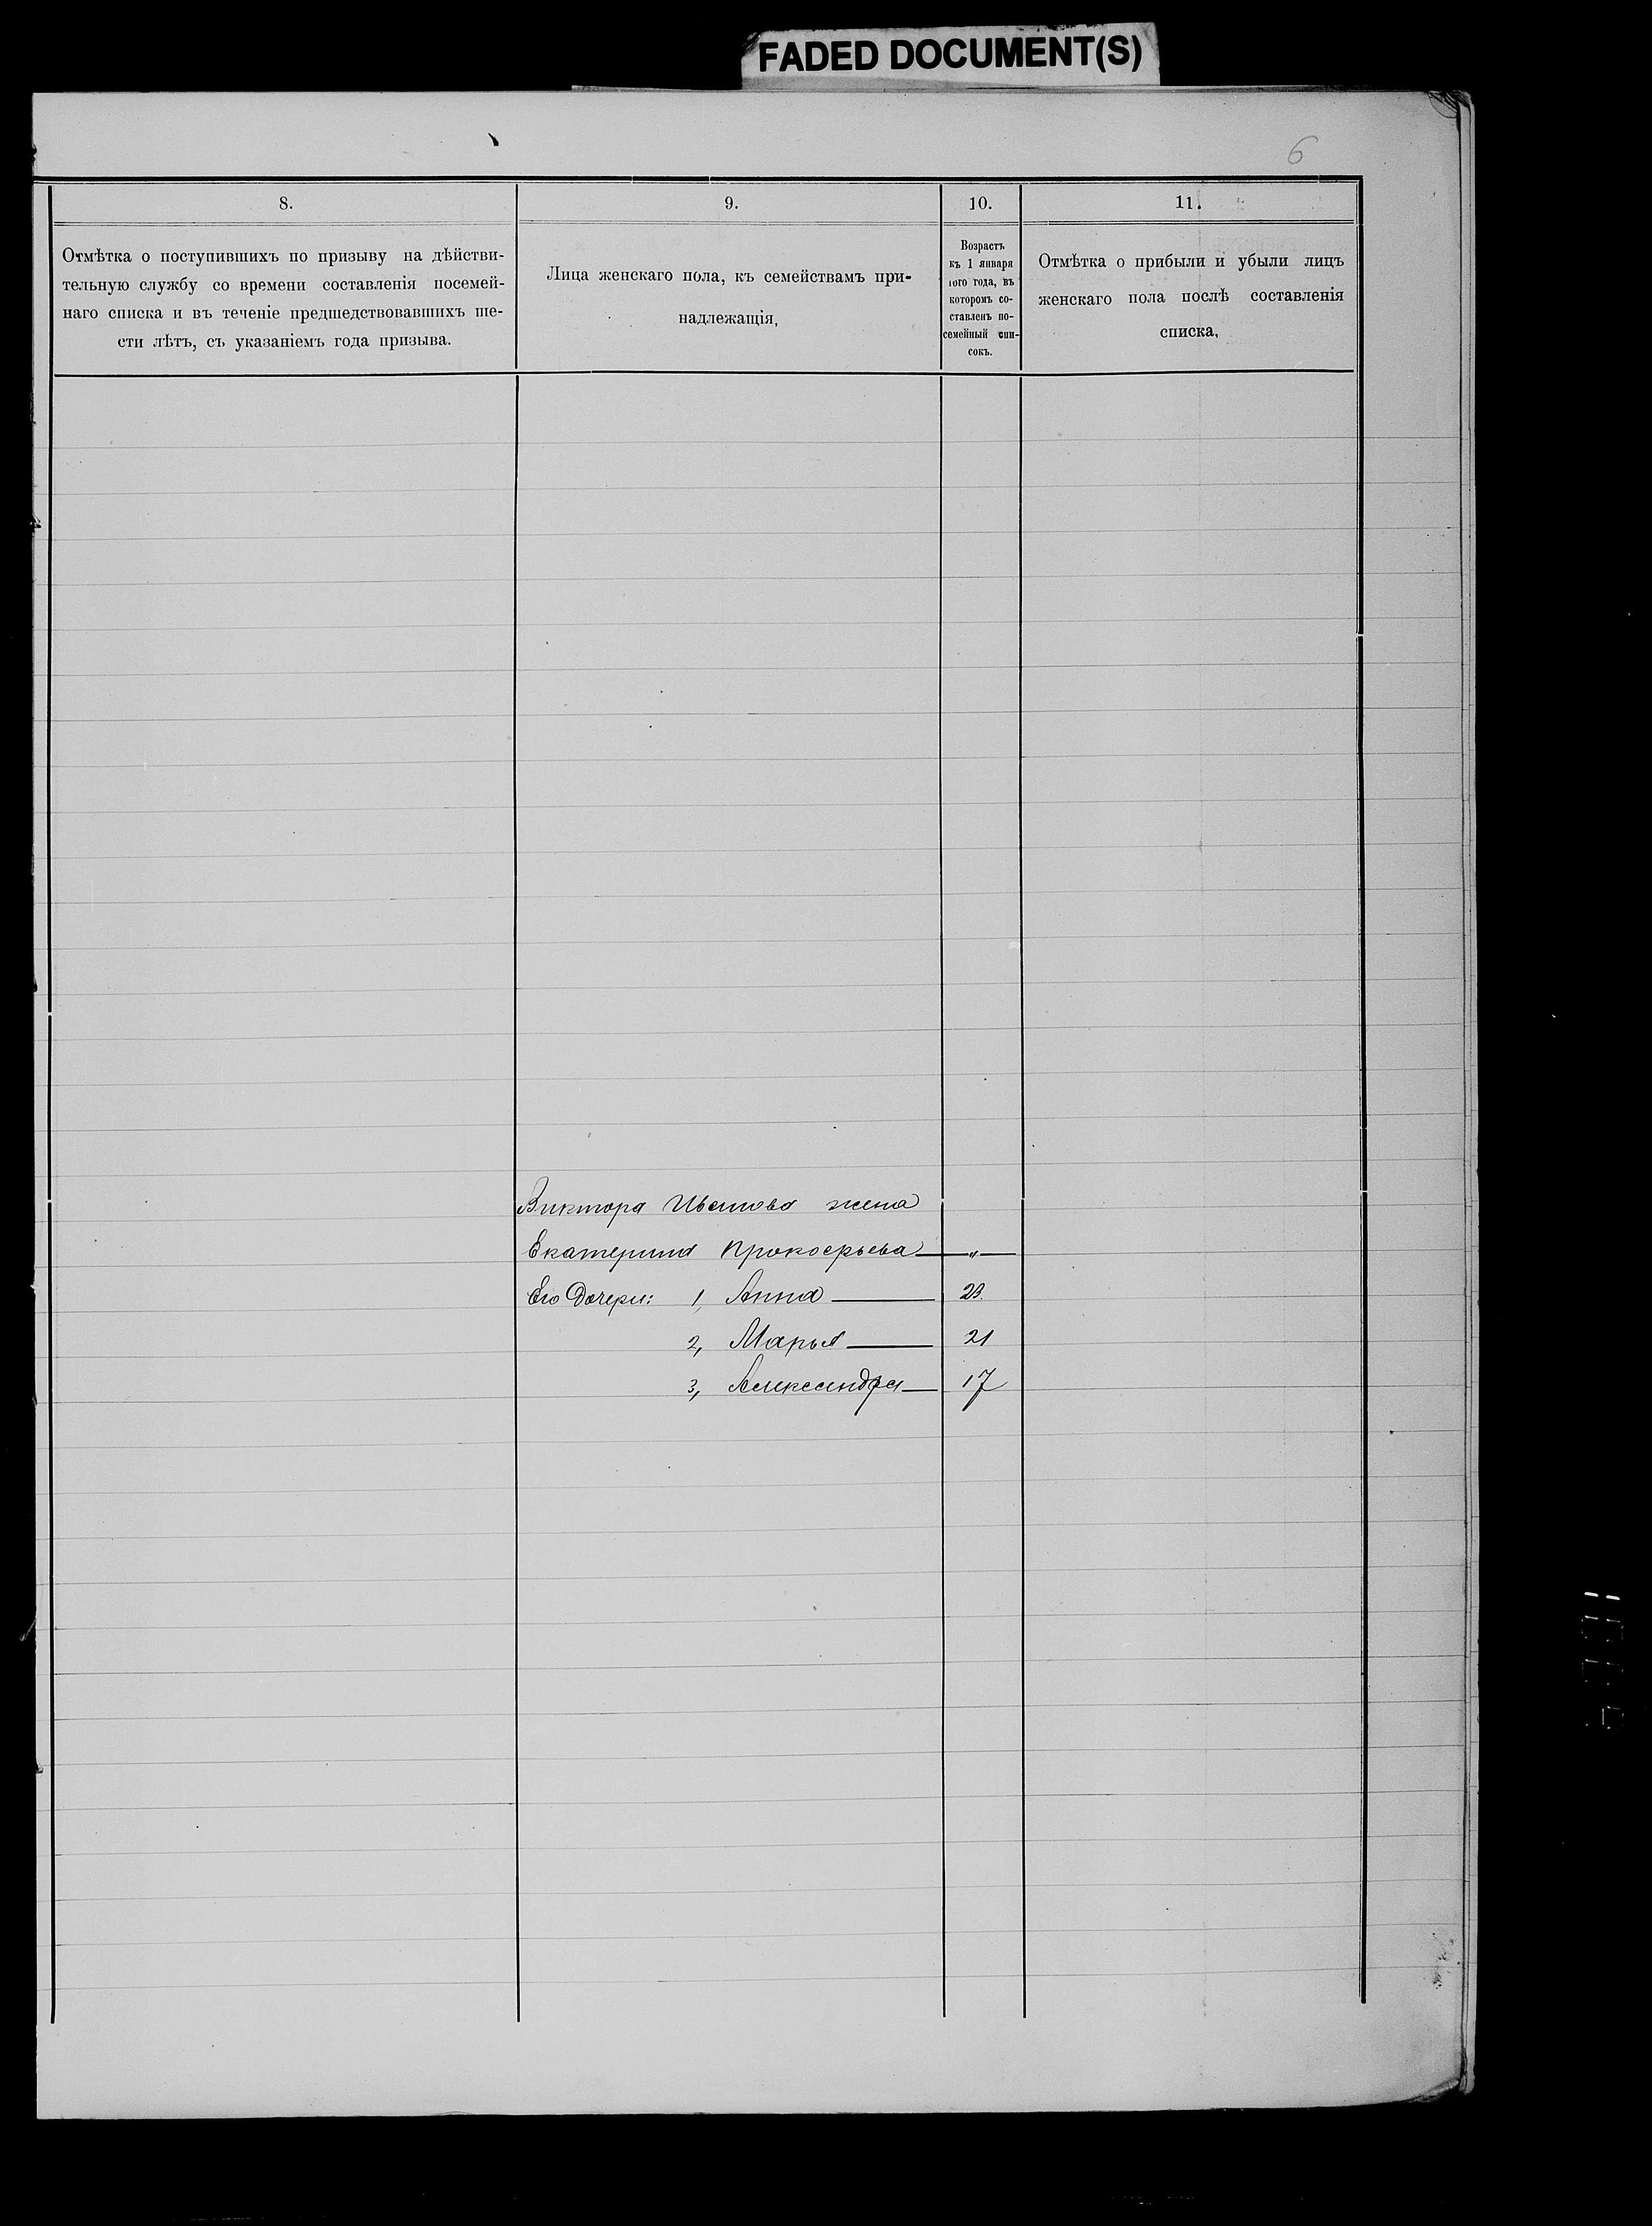 FADED DOCUMENT(S)
6
8.
9.
10.
11.
Отмѣтка о поступившихъ по призыву на дѣйстви-
тельную службу со времени составленія посемей-
наго списка и въ теченіе предшедствовавшихъ ше-
сти лѣтъ, съ указаніемъ года призыва.
Лица женскаго пола, къ семействамъ при-
надлежащія,
Возрастъ
къ 1 января
того года, въ
которомъ со-
ставленъ по-
семейный спи-
сокъ.
Отмѣтка о прибыли и убыли лицъ
женскаго пола послѣ составленія
списка,
Виктора Иванова жена
Екатерина Прокофьева — " —
Его Дочери: 1, Анна —
2, Марья — 21
3, Александра — 17